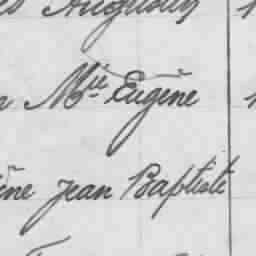 Augustin
Mie Eugène
Jean Baptiste